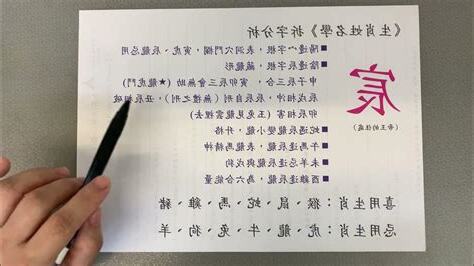 《生肖姓名學》拆字分析
宸
(帝王的住處)
■陽邊宀字根，表洞穴門欄，寅虎、辰龍忌用
■陰邊辰字根，龍形
申子辰三合，寅卯辰三會無助(★龍虎鬥)
辰戌相沖，辰辰自刑(無禮之刑)，丑辰相破
卯辰相害(玉兔見龍雲裡去)
■蛇遇辰龍變小龍，格升
■午馬逢辰龍，表龍馬精神
■未羊忌逢辰龍與戌狗
■酉雞逢辰龍，為六合能量
喜用生肖：猴、鼠、蛇、馬、雞、豬
忌用生肖：虎、龍、牛、兔、狗、羊